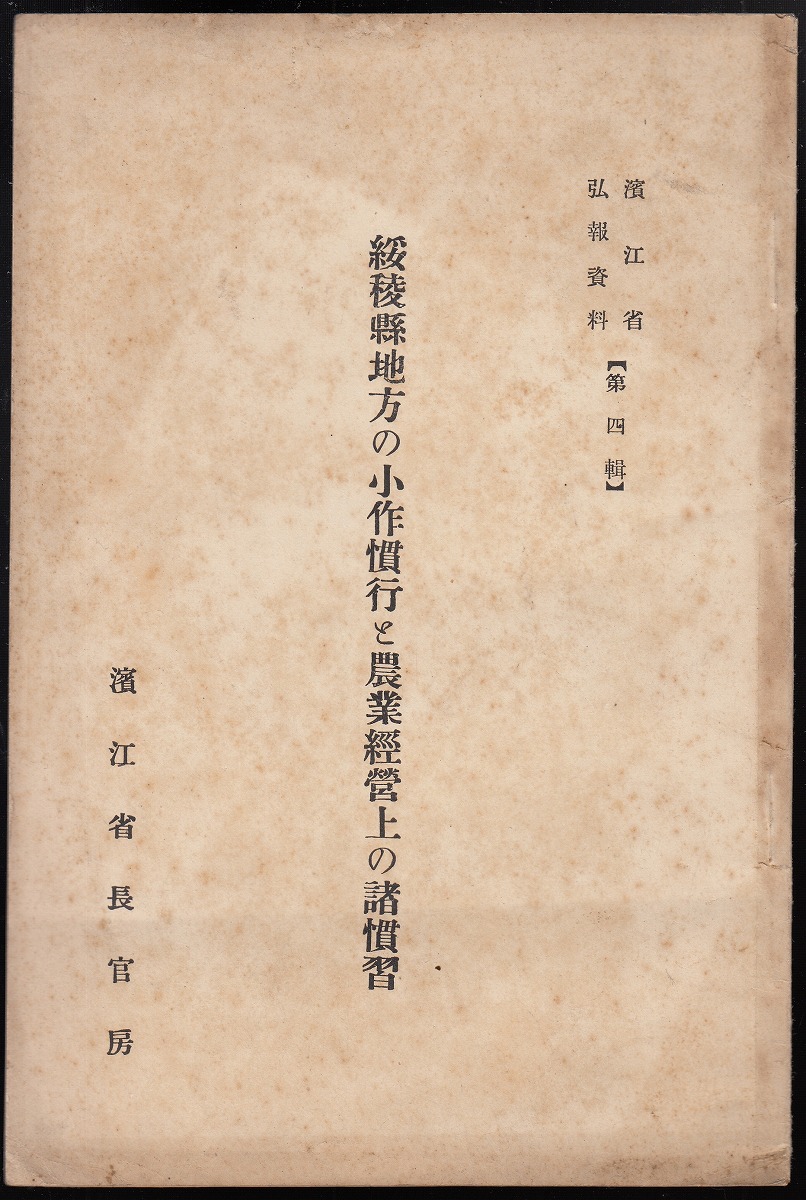 濱江省
弘報資料
【第四輯】
綏稜縣地方の小作慣行と農業經營上の諸慣習
濱江省長官房